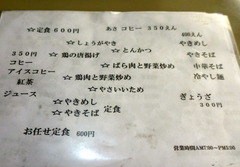 ☆定食600円 あさ コヒー 350えん
400えん
☆しょうがやき やきめし
350円 ☆鶏の唐揚げ ☆とんかつ やきそば
コヒー ☆ばら肉と野菜炒め 中華そば
アイスコヒー ☆鶏肉と野菜炒め 冷やし麺
紅茶
ジュース ☆やさいいため ぎょうざ
☆やきめし 定食 300円
☆やきそば
お任せ定食 600円
営業時間AM7:00~PM5:00